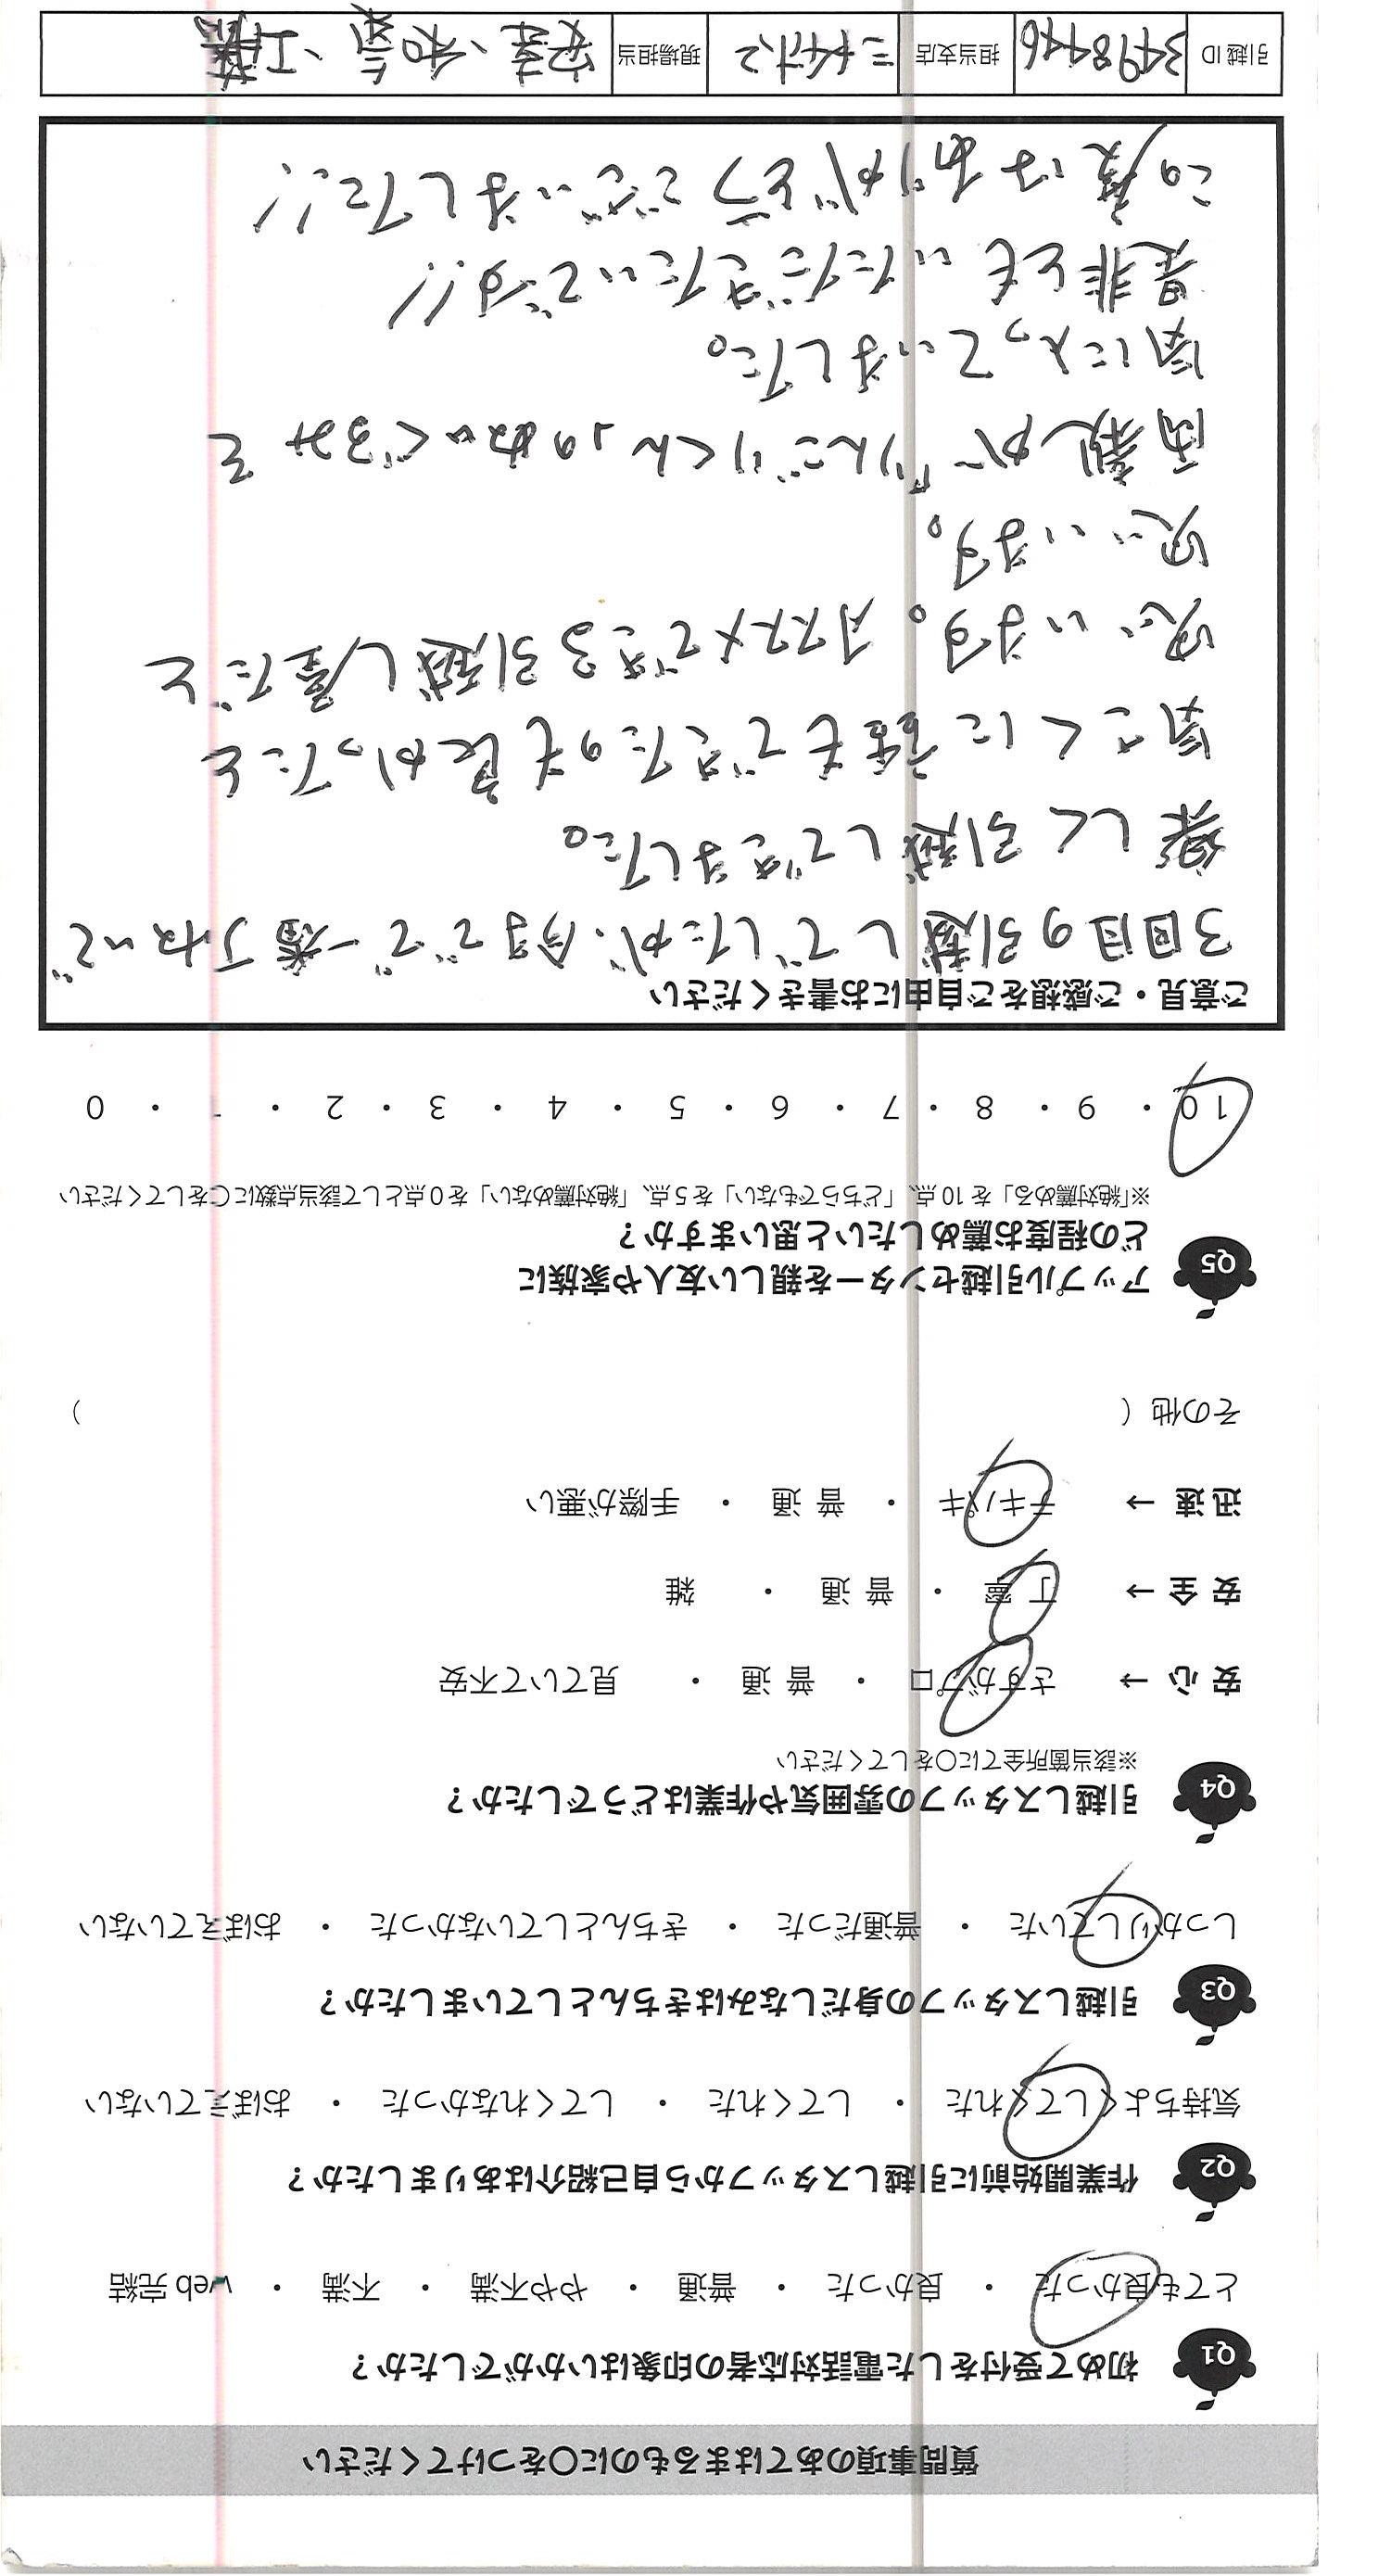 質問事項のあてはまるものに○をつけてください
Q1 初めて受付をした電話対応者の印象はいかがでしたか？
とても良かった ・ 良かった ・ 普通 ・ やや不満 ・ 不満 ・ web 完結
Q2 作業開始前に引越しスタッフから自己紹介はありましたか？
気持ちよくしてくれた ・ してくれた ・ してくれなかった ・ おぼえていない
Q3 引越しスタッフの身だしなみはきちんとしていましたか？
しっかりしていた ・ 普通だった ・ きちんとしていなかった ・ おぼえていない
Q4 引越しスタッフの雰囲気や作業はどうでしたか？
※該当箇所全てに○をしてください
安 心 → さすがプロ ・ 普 通 ・ 見ていて不安
安 全 → 丁 寧 ・ 普 通 ・ 雑
迅 速 → テキパキ ・ 普 通 ・ 手際が悪い
その他（ ）
Q5 アップル引越センターを親しい友人や家族に
どの程度お薦めしたいと思いますか？
※「絶対薦める」を 10 点、「どちらでもない」を 5 点、「絶対薦めない」を 0 点として該当点数に○をしてください
10 ・ 9 ・ 8 ・ 7 ・ 6 ・ 5 ・ 4 ・ 3 ・ 2 ・ 1 ・ 0
ご意見・ご感想をご自由にお書きください
3回目の引越しでしたが、今までで一番丁ねいで
楽しく引越しできました。
気さくに話もできたのも良かったと
思います。オススメできる引越し屋だと
思います。
両親が「りんごりくん」のぬいぐるみを
気に入っていました。
是非ともいただきたいです!!
この度はありがとうございました!!
引越 ID 3498446 担当支店 三ナイ計,2 現場担当 安達、和気、工藤